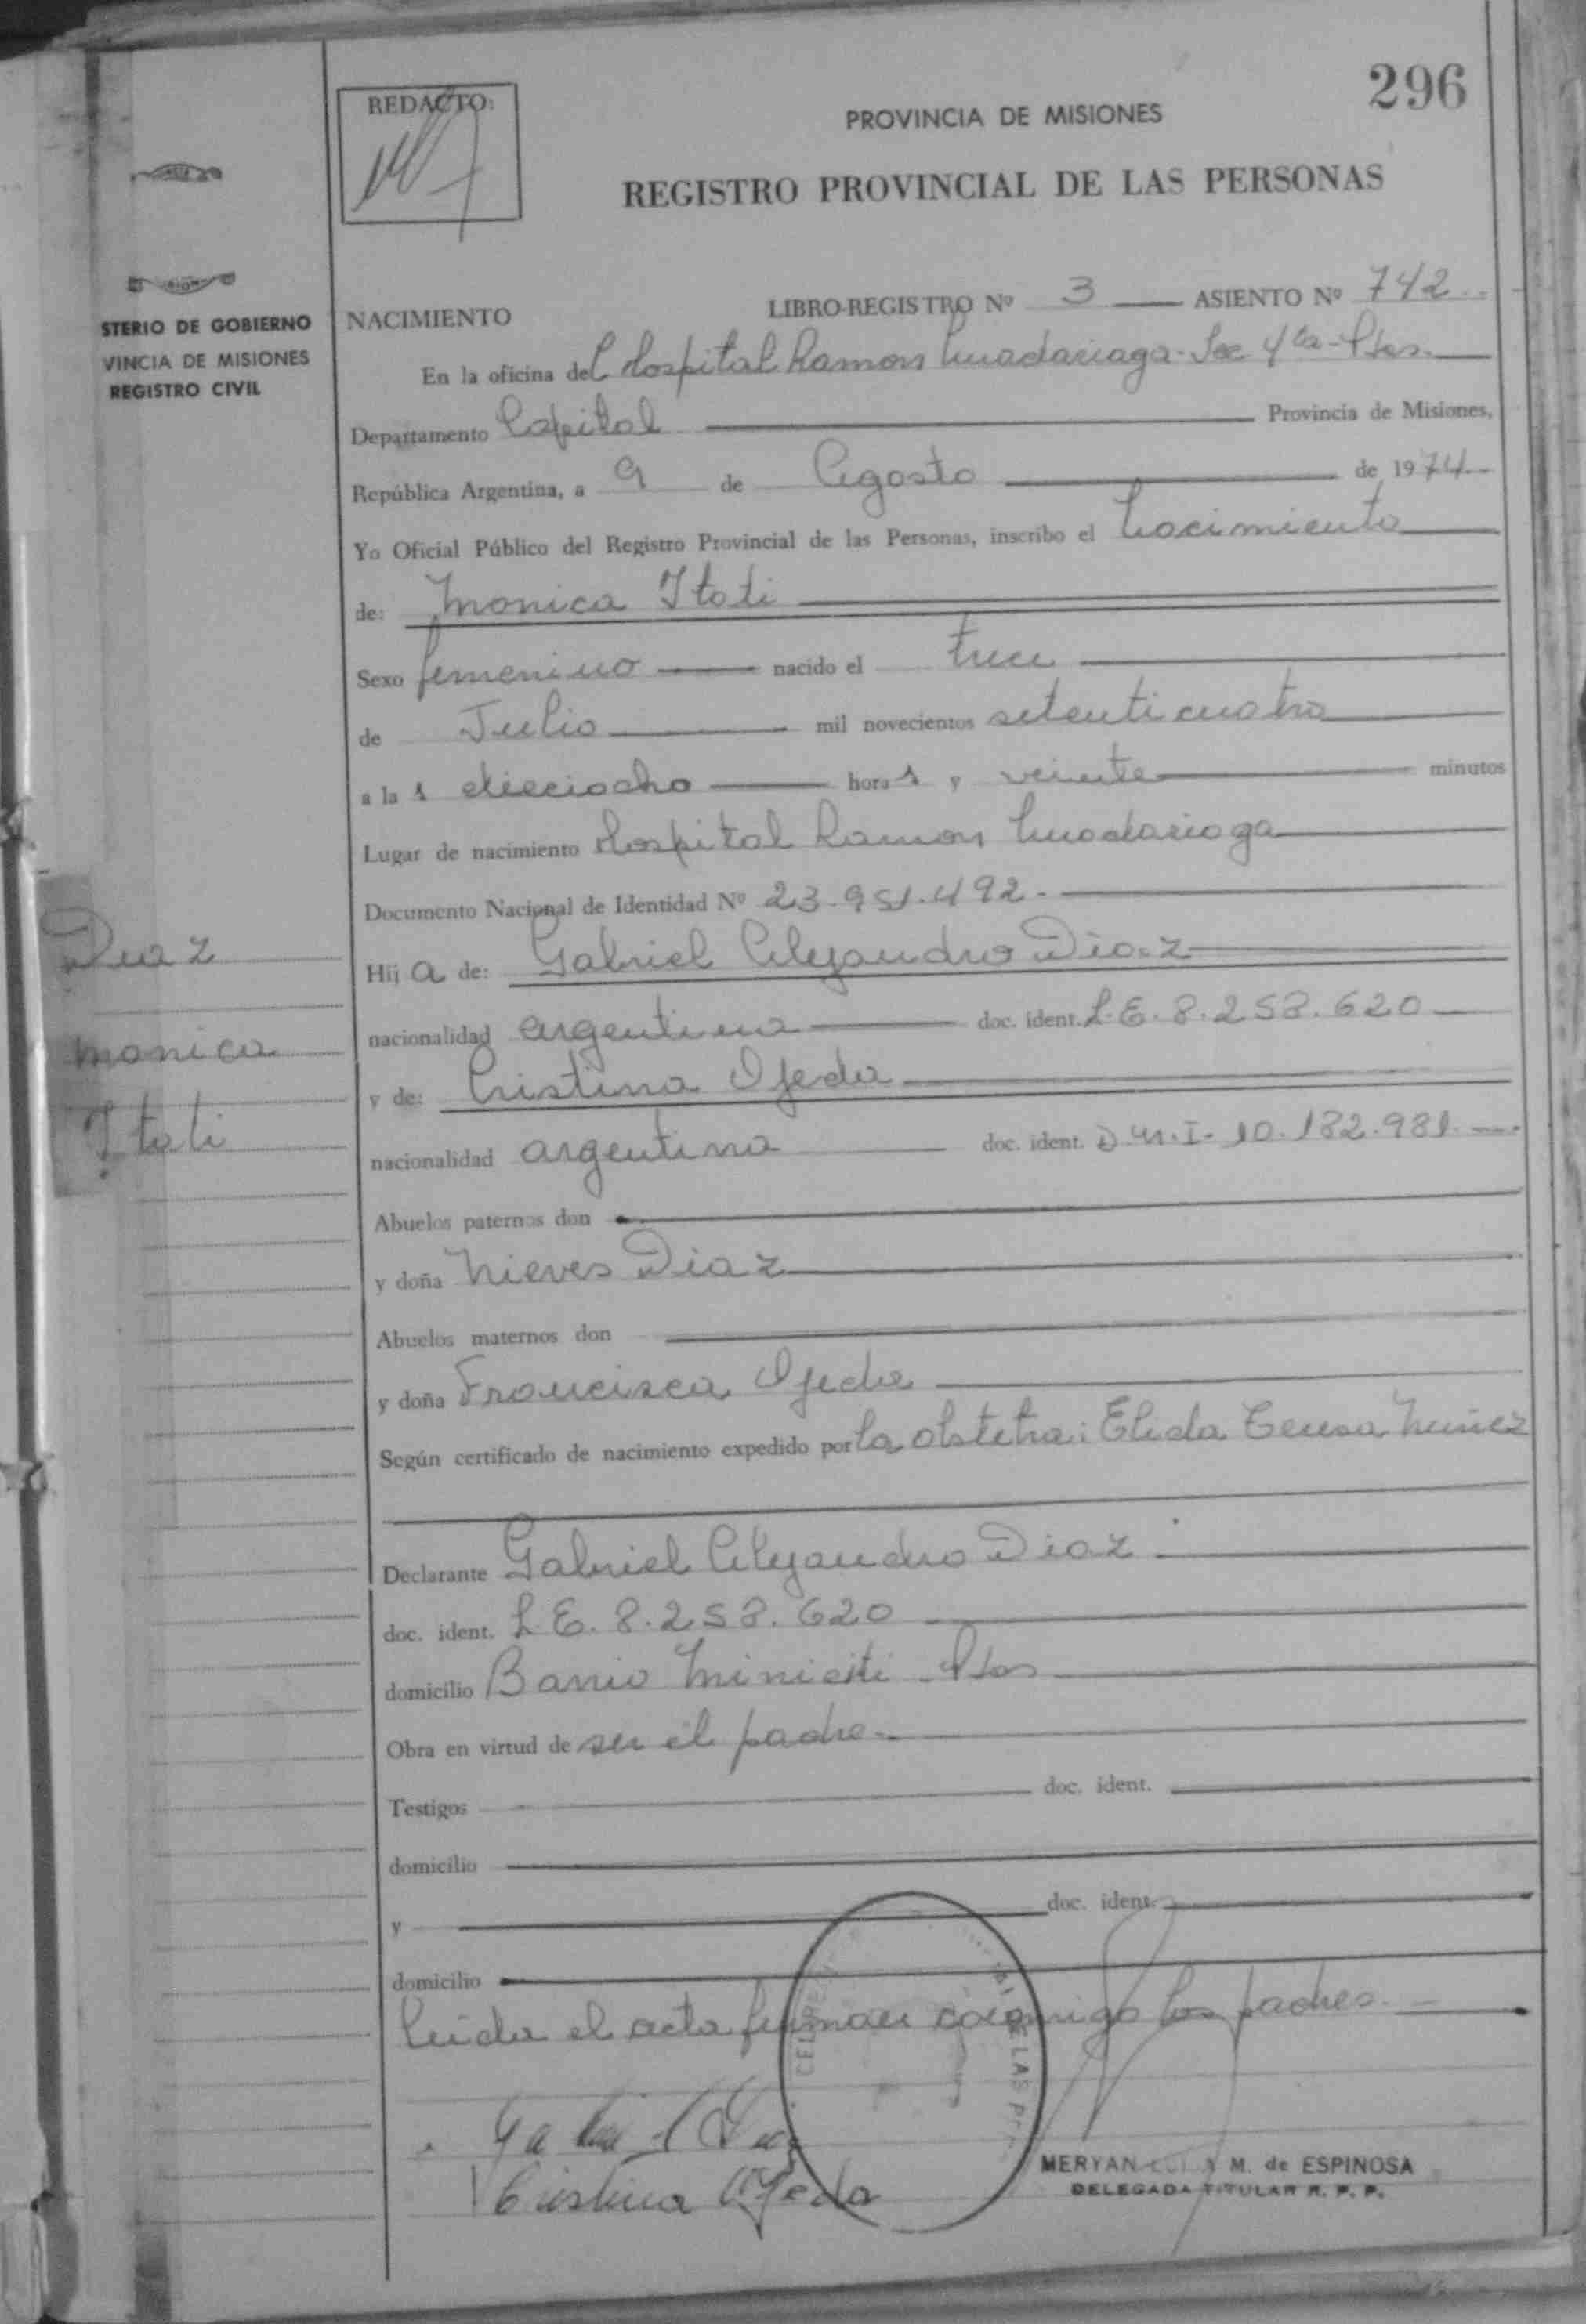 296
REDACTO:
PROVINCIA DE MISIONES
REGISTRO PROVINCIAL DE LAS PERSONAS
STERIO DE GOBIERNO
VINCIA DE MISIONES
REGISTRO CIVIL
NACIMIENTO LIBRO-REGISTRO Nº 3 ASIENTO Nº 742
En la oficina del Hospital Ramon Madariaga - Sec 4ta - Pdas.
Departamento Capital Provincia de Misiones,
República Argentina, a 9 de Agosto de 1974
Yo Oficial Público del Registro Provincial de las Personas, inscribo el Nacimiento
de: Monica Itati
Sexo femenino nacido el trece
de Julio mil novecientos setenticuatro
a las dieciocho horas y veinte minutos
Lugar de nacimiento Hospital Ramon Madariaga
Documento Nacional de Identidad Nº 23.951.492.
Diaz
Monica
Itati
Hija de: Gabriel Alejandro Diaz
nacionalidad argentina doc. ident. L.E. 8.258.620
y de: Cristina Ojeda
nacionalidad argentina doc. ident. D.N.I. 10.182.981.
Abuelos paternos don
y doña Nieves Diaz
Abuelos maternos don
y doña Francisca Ojeda
Según certificado de nacimiento expedido por la obstetra: Elida Teresa Nuñez
Declarante Gabriel Alejandro Diaz
doc. ident. L.E. 8.258.620
domicilio Barrio Miniciti - Pdas
Obra en virtud de ser el padre.
Testigos doc. ident.
domicilio
y doc. ident.
domicilio
Leida el acta firman conmigo los padres.
Gabriel Diaz
Cristina Ojeda
DE LAS
MERYAN M. de ESPINOSA
DELEGADA TITULAR R. P. P.